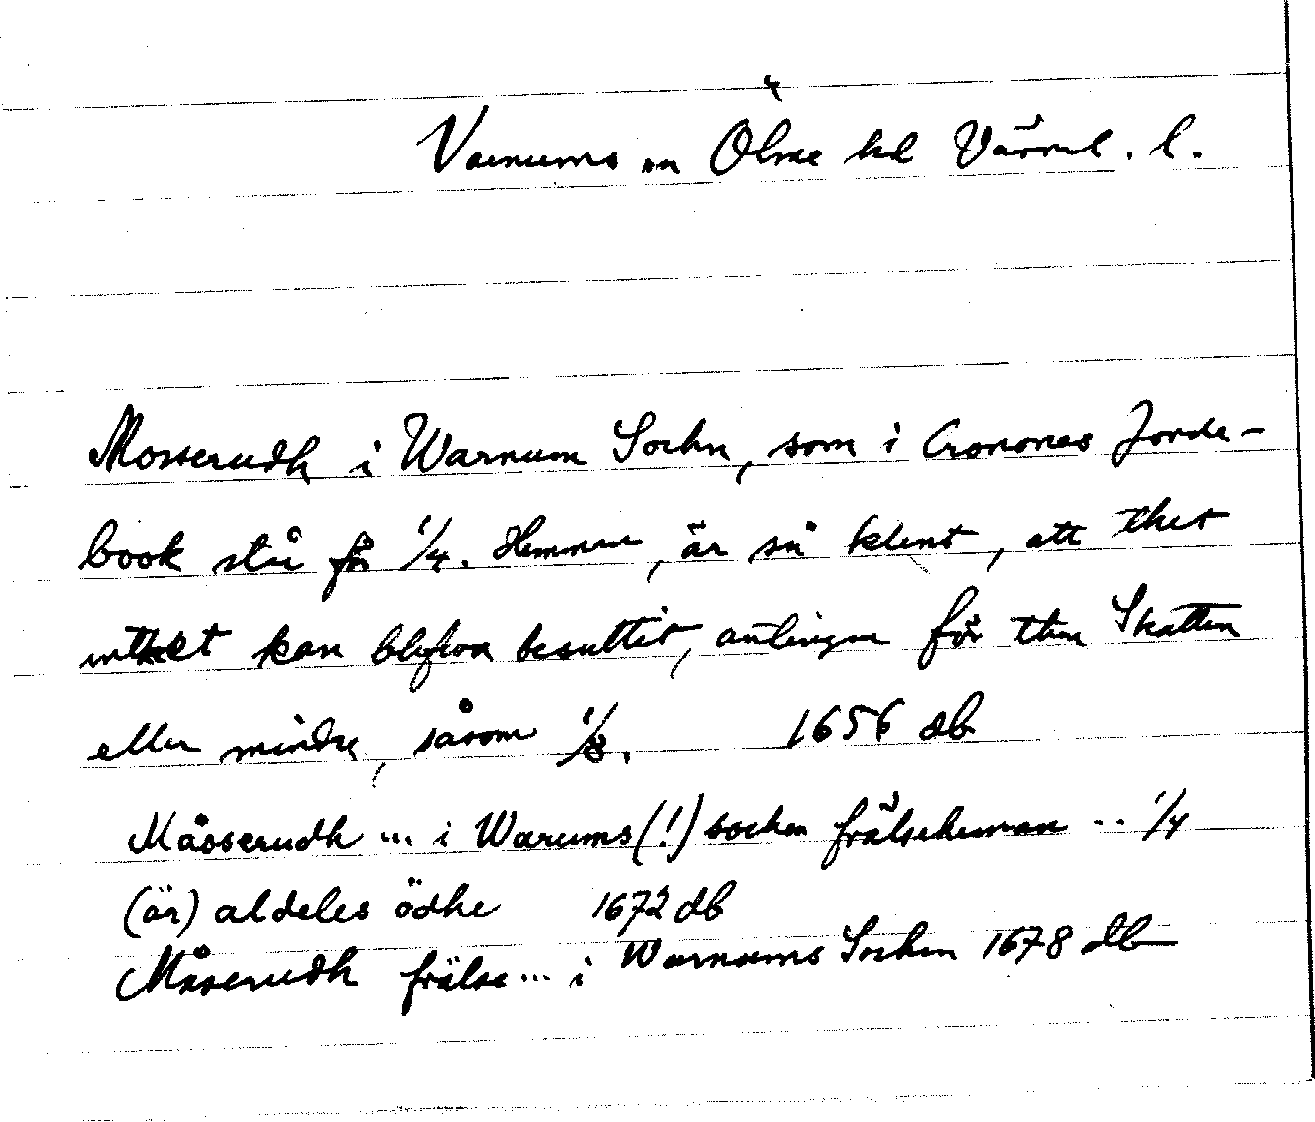 Varnums sn Ölme hd Värml. l.
Mosserudh i Warnum Sochn, som i Cronones Jorde-
book står för 1/4. Hemman, är så klent, att thet
inthet kan blifwa besuttit, antingen för then Skatten
eller mindre, såsom 1/8. 1656 db
Måsserudh ... i Warums (!) socken frälsehemman .. 1/4
(är) aldeles ödhe 1672 db
Måserudh frälse ... i Warnums Sochen 1678 db